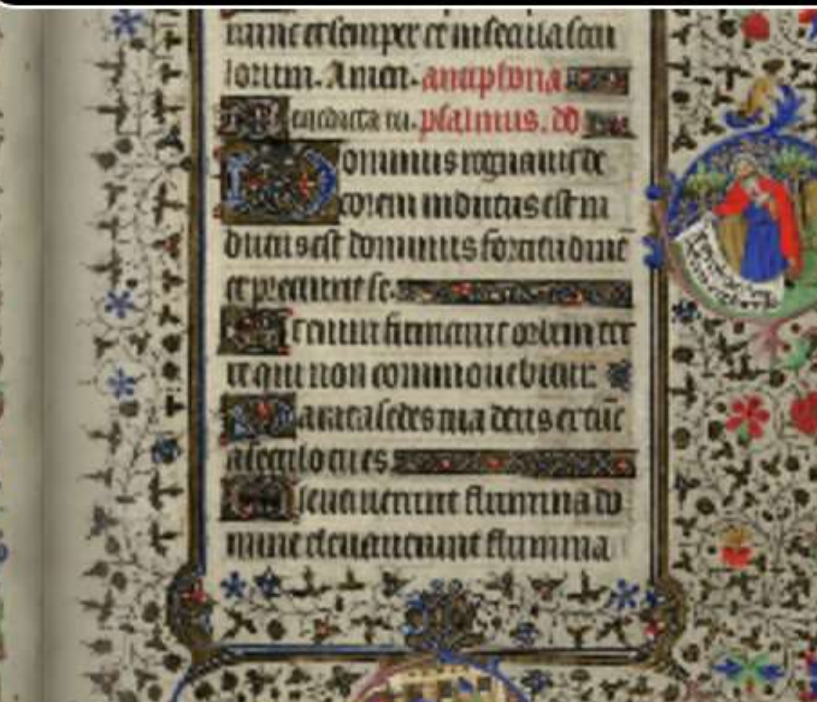 nunc et semper et in secula secu
lorum. Amen. antiphona
Benedicta tu. psalmus. do
Dominus regnauit de
corem indutus est in
dutus est dominus fortitudinē
et precinxit se.
Etenim firmauit orbem ter
re qui non commouebitur.
Parata sedes tua deus ex tūc
a seculo tu es.
Eleuauerunt flumina do
mine eleuauerunt flumina